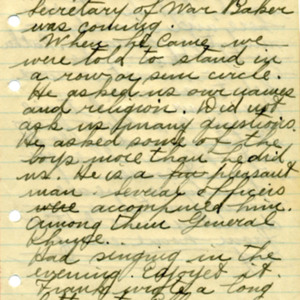 Secretary of War Baker
was coming.
When he came we
were told to stand in
a row or semi circle.
He asked us our names
and religion. Did not
ask us many questions.
He asked some of the
boys more than he did
us. He is a pleasant
man. Several officers
accompined him.
Among them General
Had singing in the
evening. Enjoyet it.
wrote a long